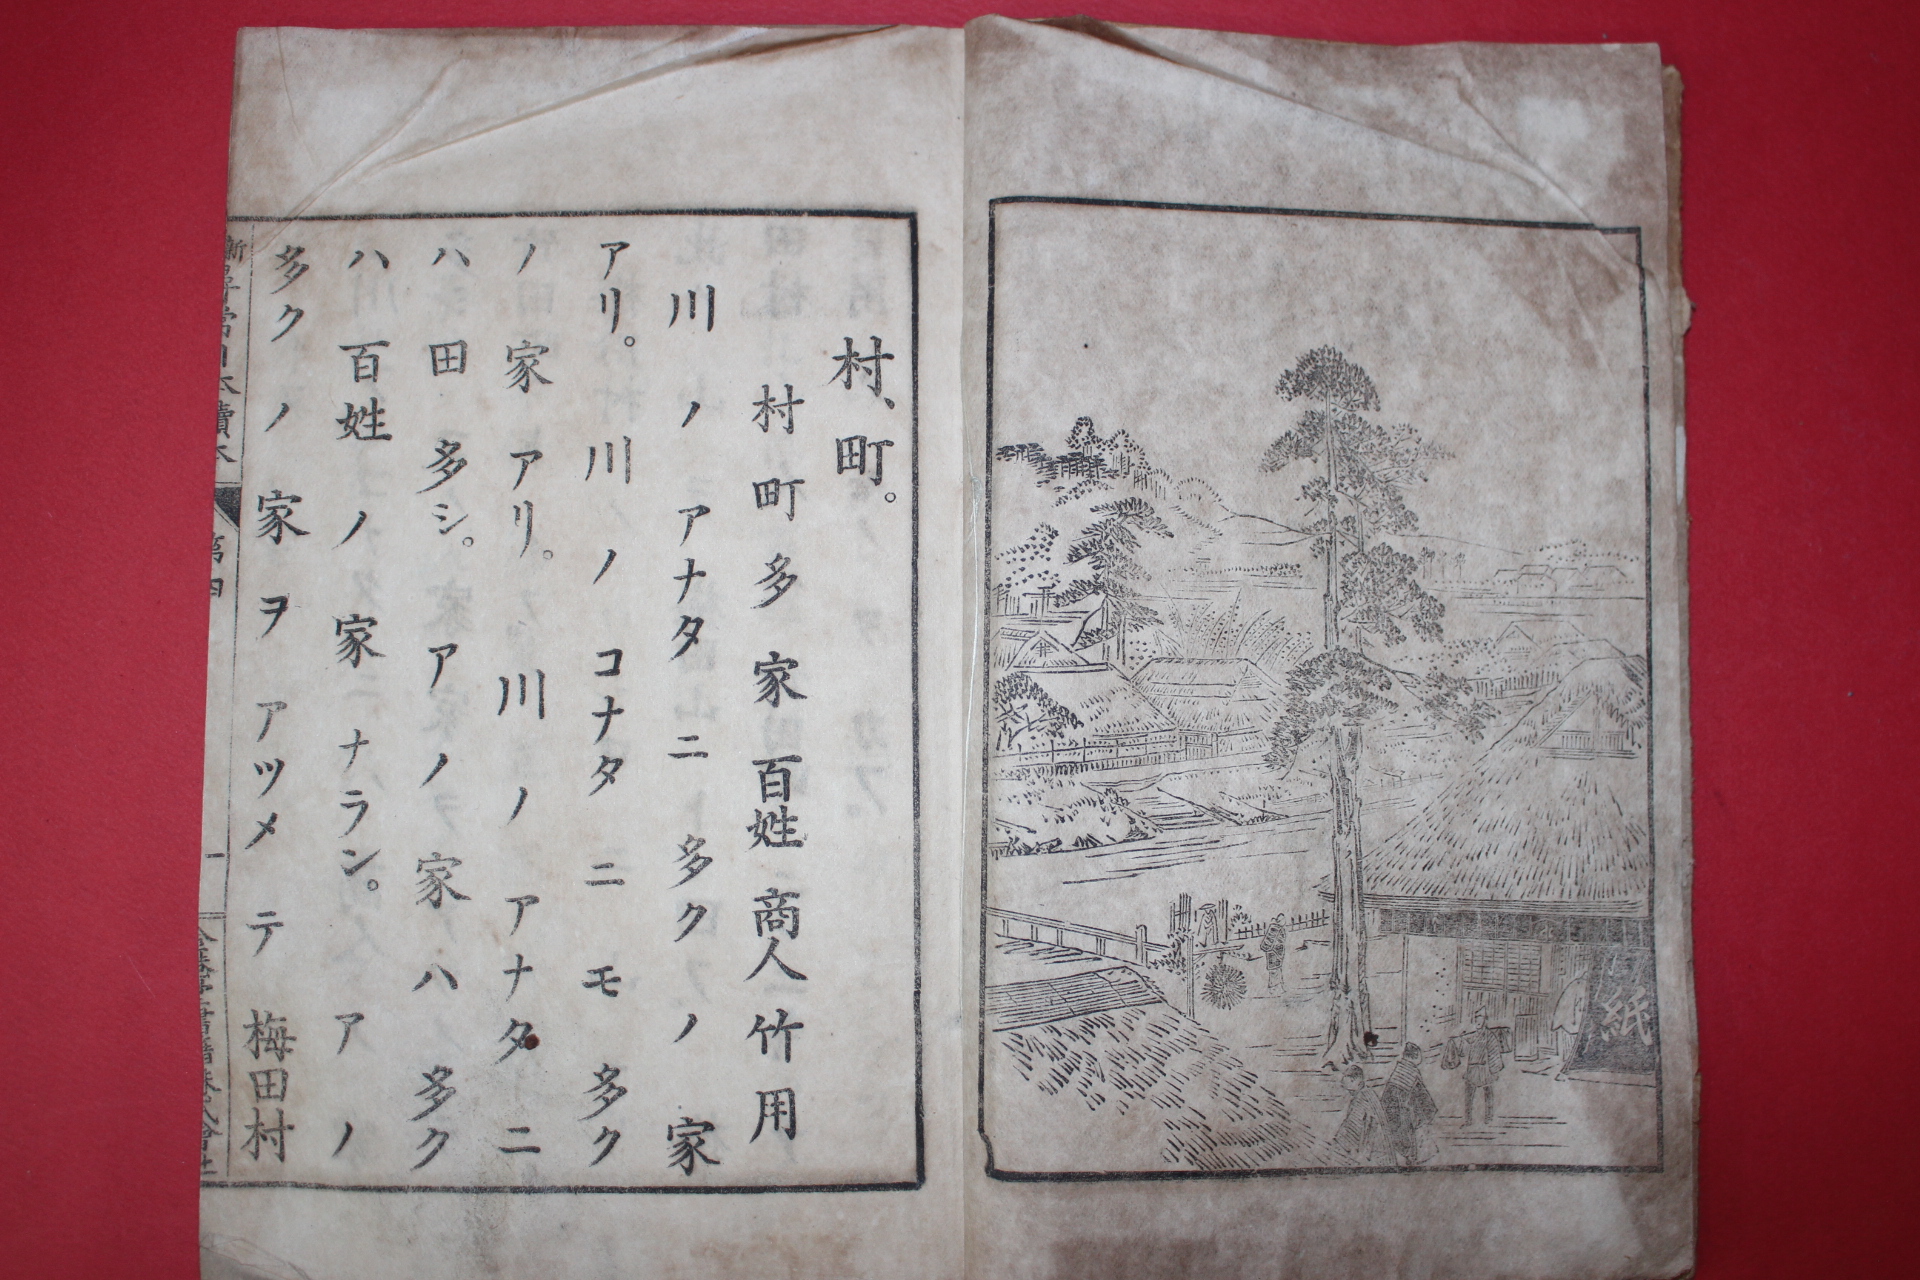 紙
村、町。
村町多家百姓商人竹用
川ノアナタニ多クノ家
アリ。川ノコナタニモ多ク
ノ家アリ。川ノアナタニ
ハ田多シ。アノ家ハ多ク
ハ百姓ノ家ナラン。アノ
多クノ家ヲアツメテ梅田村
新
常日本讀本
第四
一